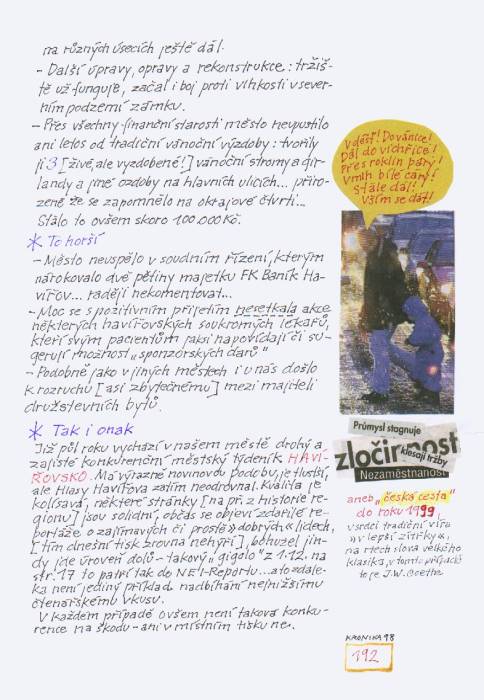 na různých úsecích ještě dál.
- Další úpravy, opravy a rekonstrukce: tržiš-
tě už funguje, začal i boj proti vlhkosti v sever-
ním podzemí zámku.
- Přes všechny finanční starosti město neupustilo
ani letos od tradiční vánoční výzdoby: tvořily
ji 3 [živé, ale vyzdobené!] vánoční stromy a gir-
landy a jiné ozdoby na hlavních ulicích... přiro-
zeně že se zapomnělo na okrajové čtvrti...
Stálo to ovšem skoro 100.000 Kč.
* To horší
- Město neuspělo v soudním řízení, kterým
nárokovalo dvě pětiny majetku FK Baník Ha-
vířov... raději nekomentovat...
- Moc se s pozitivním přijetím nesetkala akce
některých havířovských soukromých lékařů,
kteří svým pacientům jaksi napovídají či su-
gerují možnost „sponzorských darů"
- Podobně jako v jiných městech i u nás došlo
k rozruchu [asi zbytečnému] mezi majiteli
družstevních bytů.
* Tak i onak
Již půl roku vychází v našem městě druhý a
zajisté konkurenční městský týdeník HAVÍ-
ŘOVSKO. Má výrazně novinovou podobu, je tlustší,
ale Hlasy Havířova zatím neodrovnal. Kvalita je
kolísavá, některé stránky [na př. z historie re-
gionu] jsou solidní, občas se objeví zdařilé re-
portáže o zajímavých či prostě „dobrých" lidech,
[tím dnešní tisk zrovna nehýří], bohužel jin-
dy jde úroveň dolů - takový „gigolo" z 1.12. na
str. 17 to patří tak do NEI-Reportu... a to zdale-
ka není jediný příklad nadbíhání nejnižšímu
čtenářskému vkusu.
V každém případě ovšem není taková konku-
rence na škodu - ani v místním tisku ne.
V déšť! Do vánice!
Dál do vichřice!
Přes roklin páry!
Vmlh bílé cáry!
Stále dál!
Vším se dát!
Průmysl stagnuje
zločinnost
klesají tržby
Nezaměstnanost
aneb „česká cesta"
do roku 1999,
v srdci tradiční víra
„v lepší zítřky",
na rtech slova velkého
klasika, v tomto případě
to je J.W. Goethe
KRONIKA 98
192